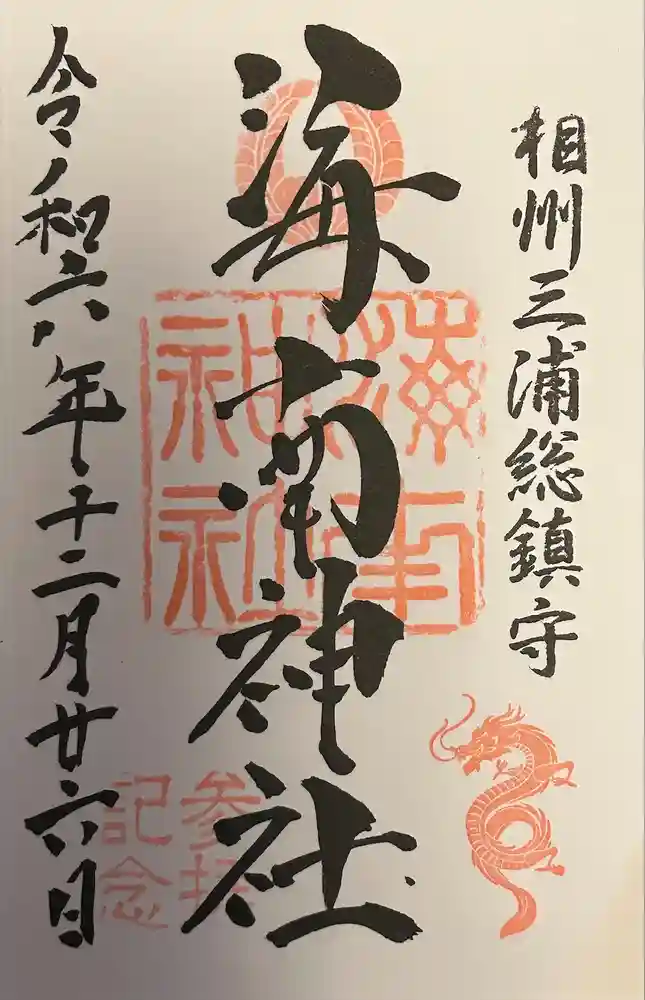 相州三浦総鎮守
海南神社
海南神社
参拝記念
令和六年十二月廿六日